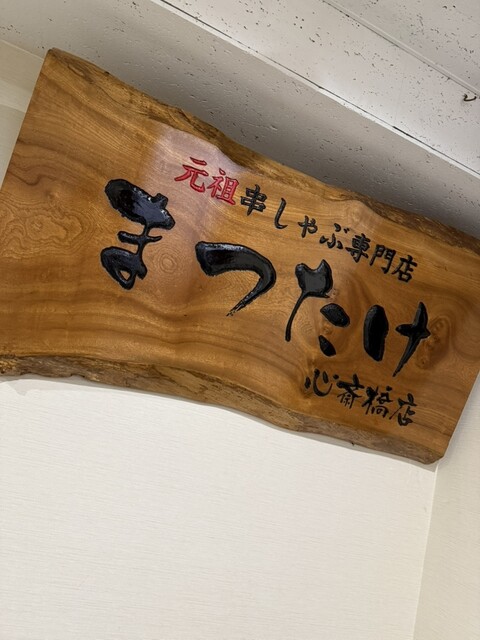 元祖串しゃぶ専門店
まつたけ
心斎橋店